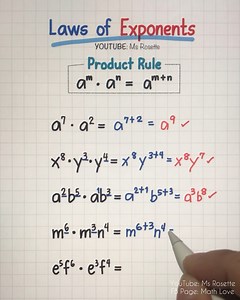 Laws of Exponents
YOUTUBE: Ms Rosette
Product Rule
aᵐ · aⁿ = aᵐ⁺ⁿ
a⁷ · a² = a⁷⁺² = a⁹ ✓
x⁸ · y³ · y⁴ = x⁸ y³⁺⁴ = x⁸y⁷ ✓
a²b⁵ · a¹b³ = a²⁺¹ b⁵⁺³ = a³b⁸ ✓
m⁶ · m³n⁴ = m⁶⁺³ n⁴ =
e⁵f⁶ · e³f⁴ =
YouTube: Ms Rosette
Page: Math Love